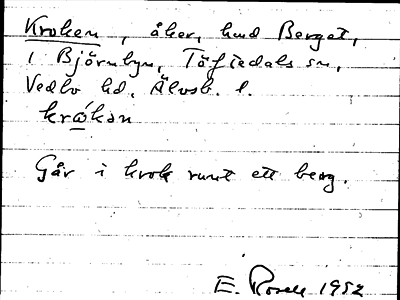 Kroken, åker, hmd Berget,
i Björnbyn, Töftedals sn,
Vedbo hd, Älvsb. l.
krókən
Går i krok runt ett berg.
E. Rosell 1952